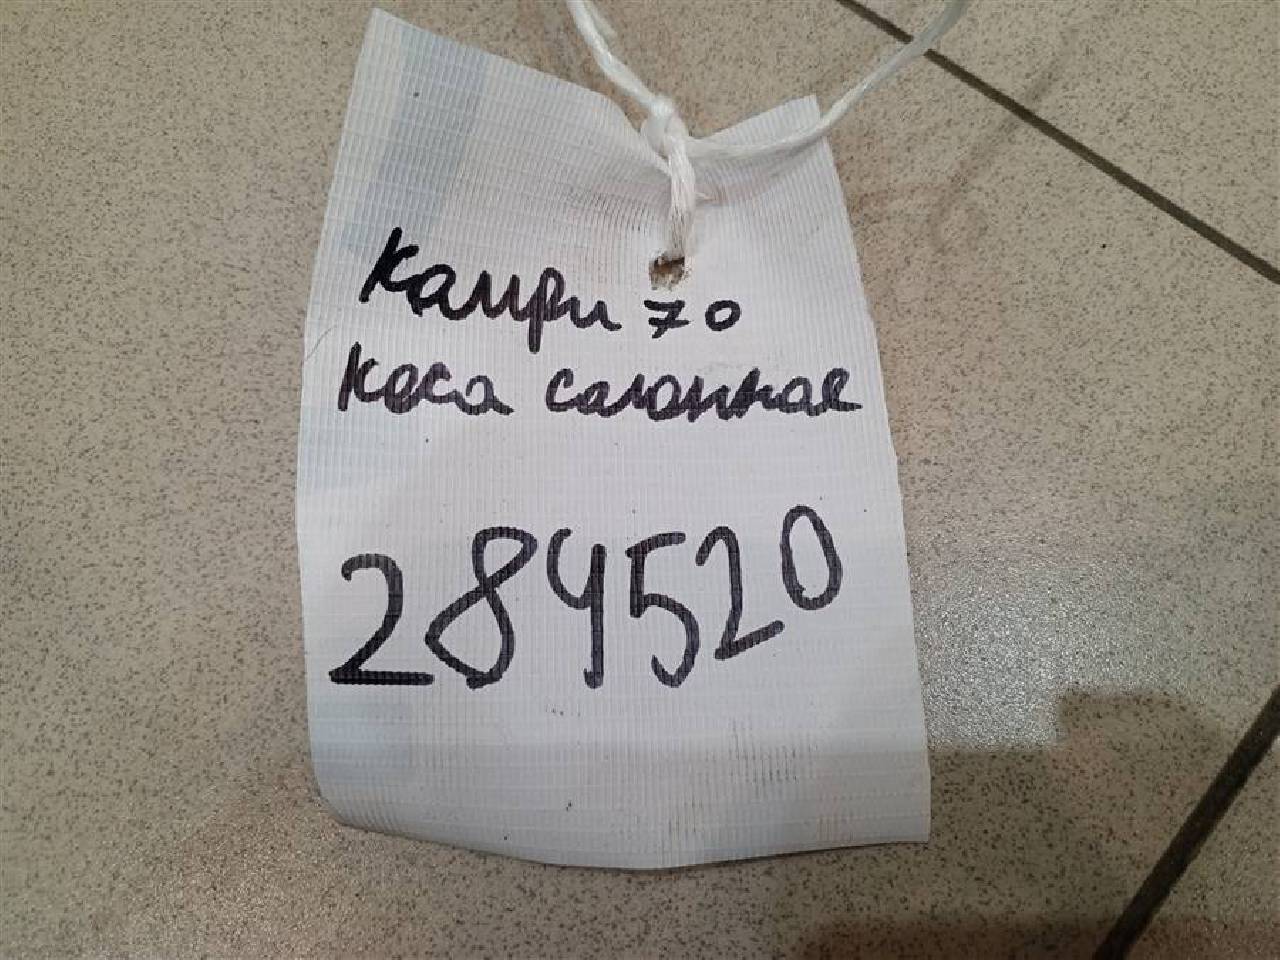 Камри 70
Коса салонная
284520